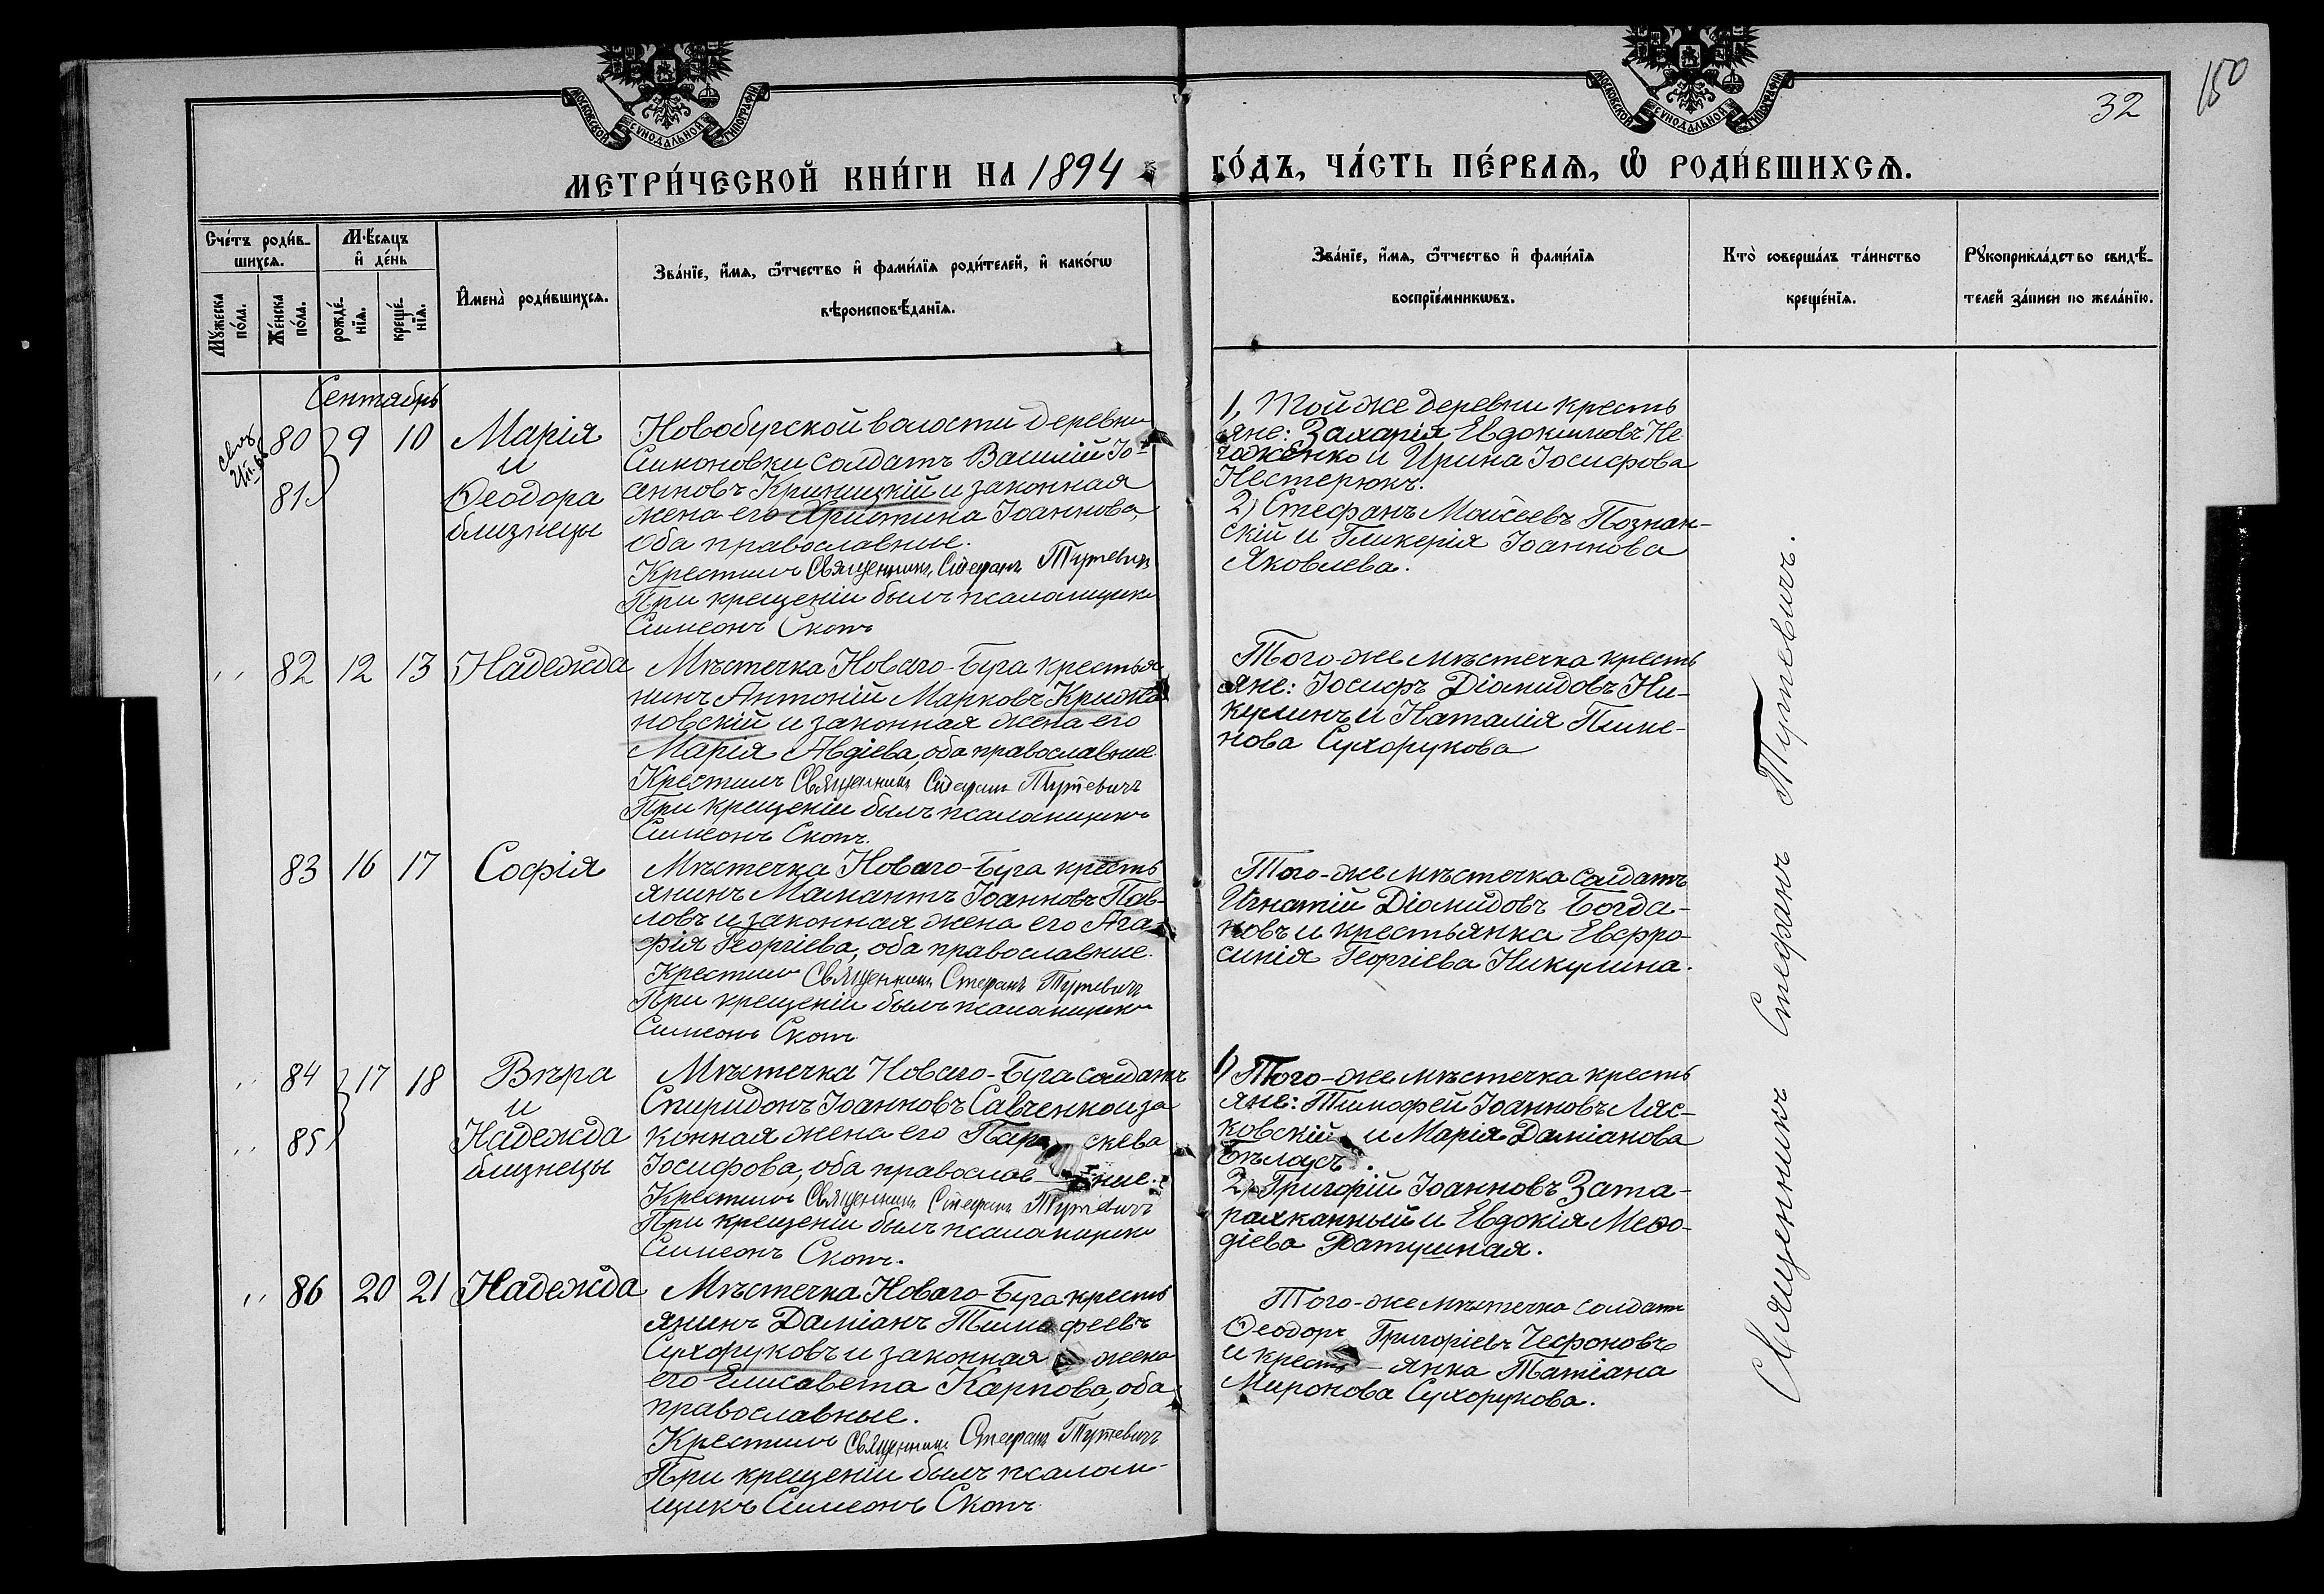 150
32
МОСКОВСКОЙ СѴНОДАЛЬНОЙ ТИПОГРАФІИ
МОСКОВСКОЙ СѴНОДАЛЬНОЙ ТИПОГРАФІИ
МЕТРИ́ЧЕСКОЙ КНИ́ГИ НА 1894 ГО́ДЪ, ЧА́СТЬ ПЕ́РВАѦ, Ѡ҆ РОДИ́ВШИХСѦ.
Счéтъ роди́в-
шихсѧ.
Мꙋ́жеска
по́ла.
Же́нска
по́ла.
М́ѣсѧцъ
и҆ де́нь
рожде́-
нїѧ.
креще́-
нїѧ.
И҆мена̀ роди́вшихсѧ.
Зва́нїе, и҆́мѧ, ѻ҆́тчество и҆ фами́лїѧ роди́телей, и҆ како́гѡ
вѣроисповѣ́данїѧ.
Зва́нїе, и҆́мѧ, ѻ҆́тчество и҆ фами́лїѧ
воспрїе́мникѡвъ.
Кто̀ соверша́лъ та́инство
креще́нїѧ.
Рꙋкоприкла́дство свидѣ́-
телей за́писи по жела́нїю.
Сентябрь
80 9 10 Марія
и
81 Ѳеодора
близнецы
Новобугской волости деревни
Симоновки солдатъ Василій Іо-
анновъ Криницкій и законная
жена его Христина Іоаннова,
оба православные.
Крестилъ Священникъ Стефанъ Тутевичъ
При крещеніи былъ псаломщикъ
Симеонъ Скопъ
1, Той же деревни кресть
яне: Захарія Евдокимовъ Не
чаженко и Ирина Іосифова
Нестерюкъ.
2) Стефанъ Моисеевъ Познан-
скій и Гликерія Іоаннова
Яковлева.
" 82 12 13 Надежда
Мѣстечка Новаго-Буга крестья
нинъ Антоній Марковъ Крижа
новскій и законная жена его
Марія Авдіева, оба православные.
Крестилъ Священникъ Стефанъ Тутевичъ
При крещеніи былъ псаломщикъ
Симеонъ Скопъ.
Того-же мѣстечка кресть
яне: Іосифъ Діомидовъ Ни-
кулинъ и Наталія Пиме-
нова Сухорукова
83 16 17 Софія
Мѣстечка Новаго-Буга кресть
янинъ Мамантъ Іоанновъ Пав-
ловъ и законная жена его Ага-
фія Георгіева, оба православные.
Крестилъ Священникъ Стефанъ Тутевичъ
При крещеніи былъ псаломщикъ
Симеонъ Скопъ
Того-же мѣстечка солдатъ
Игнатій Діомидовъ Богда-
новъ и крестьянка Евфро-
синія Георгіева Никулина.
" 84 17 18 Вѣра
и
" 85 Надежда
близнецы
Мѣстечка Новаго-Буга солдатъ
Спиридонъ Іоанновъ Савченко и за
конная жена его Пара скева
Іосифова, оба православ ные.
Крестилъ Священникъ Стефанъ Тутевичъ
При крещеніи былъ псаломщикъ
Симеонъ Скопъ.
1) Того-же мѣстечка кресть
яне: Тимофей Іоанновъ Ляс-
ковскій и Марія Даміанова
Бѣлоусъ.
2) Григорій Іоанновъ Зата-
раханный и Евдокія Меѳо-
діева Ратушная.
" 86 20 21 Надежда
Мѣстечка Новаго-Буга кресть
янинъ Даміанъ Тимофеевъ
Сухоруковъ и законная жена
его Елисавета Карпова, оба
православные.
Крестилъ Священникъ Стефанъ Тутевичъ
При крещеніи былъ псалом-
щикъ Симеонъ Скопъ
Того-же мѣстечка солдатъ
Ѳеодоръ Григоріевъ
и кресть-янка Татіана
Миронова Сухорукова.
Священникъ Стефанъ Тутевичъ.